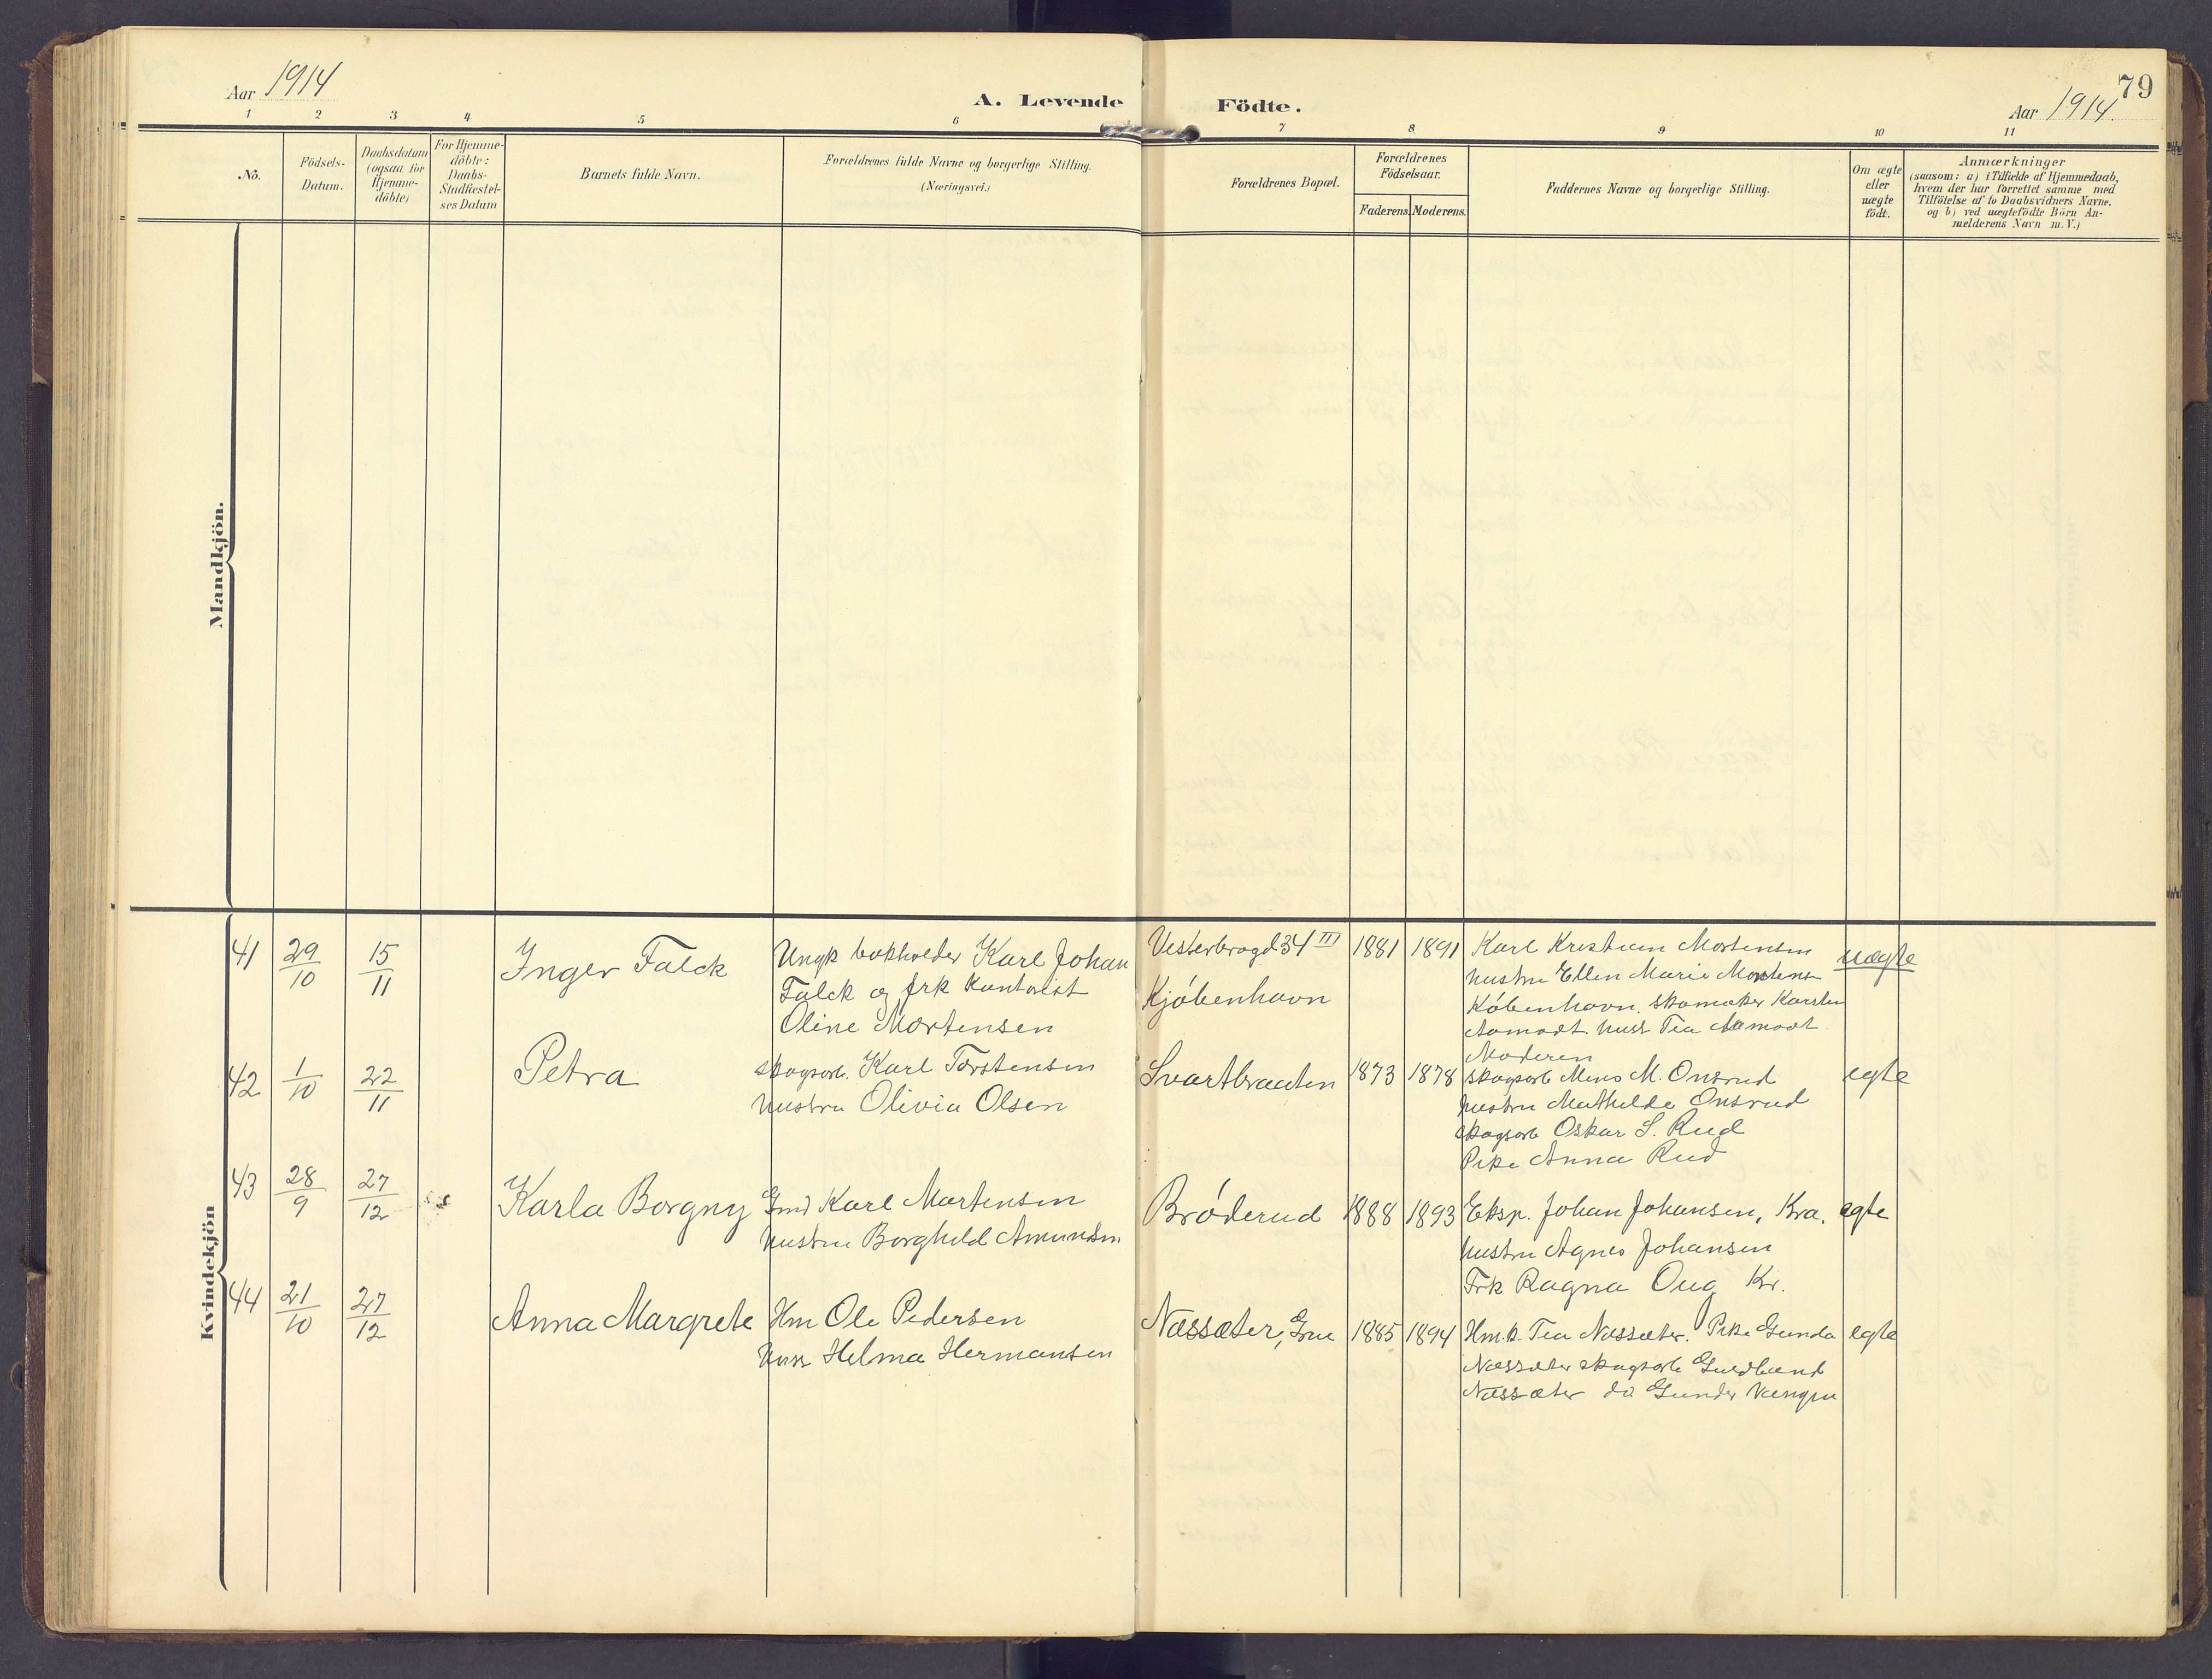 79
Aar 1914
A. Levende Födte.
Aar 1914
1 2 3 4 5 6 7 8 9 10 11
No.
Födsels-
Datum.
Daabsdatum
(ogsaa for
Hjemme-
döbte)
For Hjemme-
döbte:
Daabs-
Stadfæstel-
ses Datum
Barnets fulde Navn.
Forældrenes fulde Navne og borgerlige Stilling.
(Næringsvei.)
Forældrenes Bopæl.
Forældrenes
Födselsaar.
Faderens. Moderens.
Faddernes Navne og borgerlige Stilling.
Om ægte
eller
uægte
födt.
Anmærkninger
(saasom: a) i Tilfælde af Hjemmedaab,
hvem der har forrettet samme med
Tilföielse af to Daabsvidners Navne,
og b) ved uægtefödte Börn An-
melderens Navn m. V.)
Mandkjön.
Kvindekjön
41 29/10 15/11 Inger Falck
Ungk bokholder Karl Johan
Falck og frk Kontorist
Oline Mortensen
Vesterbrogd 34 III
Kjøbenhavn
1881 1891
Karl Kristian Mortensen
hustru Ellen Marie Mortensen
København. skomaker Karsten
Aamodt. hust Tea Aamodt
Moderen
uægte
42 1/10 22/11 Petra
skogsarb. Karl Torstensen
hustru Olivia Olsen
Svartbraaten
1873 1878
skogsarb M. Onsrud
hustru Mathilde Onsrud
skogsarb Oskar S. Rud
Pike Anna Rud
egte
43 28/9 27/12 Karla Borgny
Gmd Karl Martensen
hustru Borghild Amundsen
Brøderud
1888 1893
Eksp. Johan Johansen, Kra.
hustru Agnes Johansen
Frk Ragna Kr.
egte
44 21/10 27/12 Anna Margrete
Hm Ole Pedersen
Hust Helma Hermansen
Næssæter, Grue
1885 1894
Hm.k. Tea Næssæter. Pike Gunda
Næssæter skogsarb Guldbrand
Næssæter do Gunder
egte